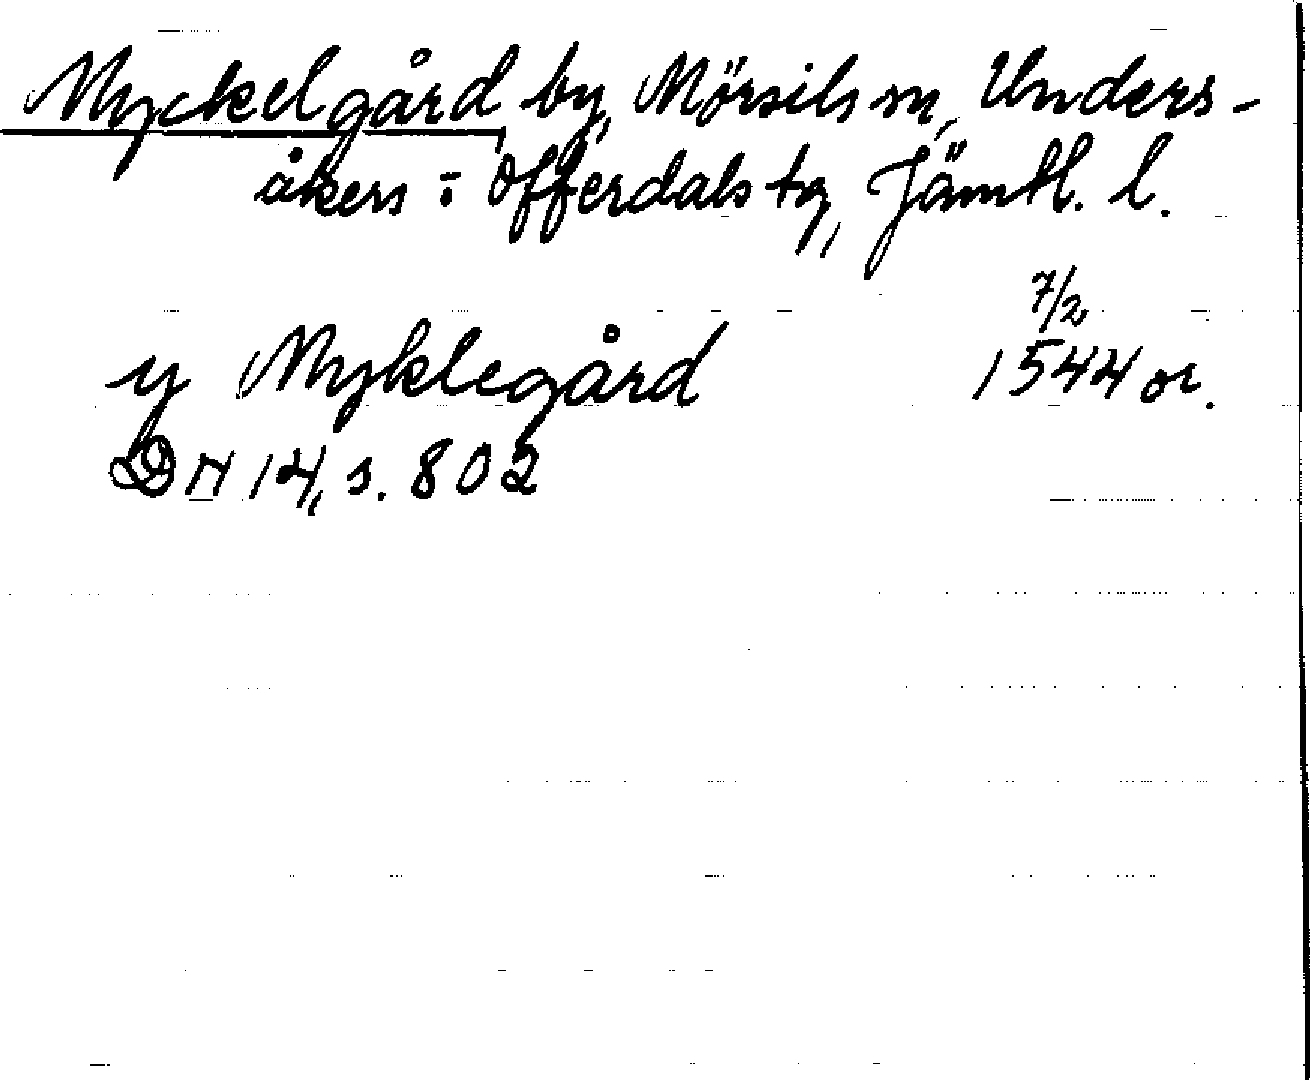 Myckelgård by, Mörsils sn, Unders-
åkers o Offerdals tg, Jämtl. l.
7/2
y Myklegård 1544 or.
DN 14, s. 802